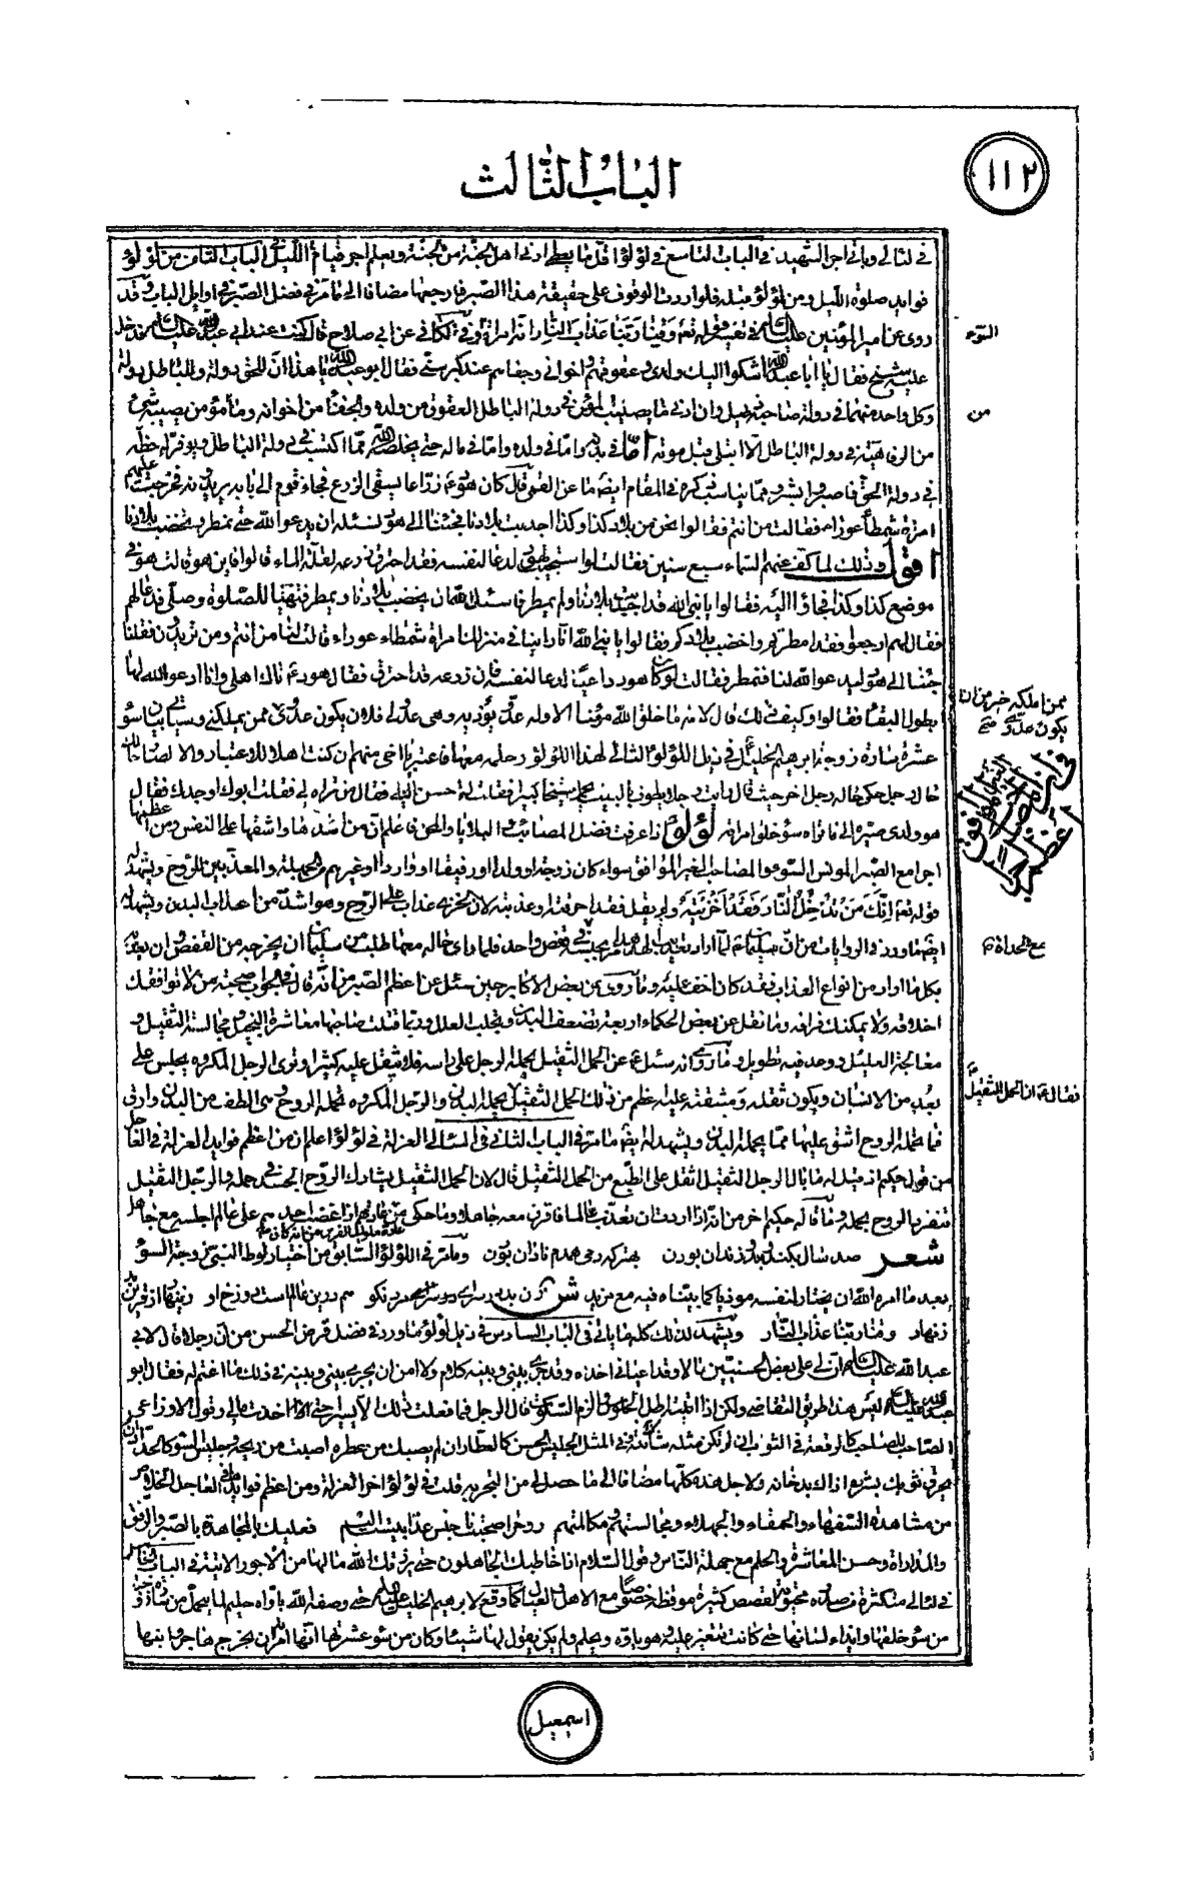 ١١٢
الباب الثالث
في لئالي وياتي اجر الشهيد في الباب التاسع في لؤلؤ اقل ما يعطي ادنى اهل الجنة من الجنة ويعلم اجر قيام الليل في الباب الثامن من لؤلؤ
فوايد صلوة الليل ومن لؤلؤ قبله فلو اردت الوقوف على حقيقة هذا الصبر فارجعها مضافا الى ما مر في فضل الصبر في اوايل الباب وقد
روى عن امير المؤمنين عليه السلام في تفسير قوله تعالى وقنا ربنا عذاب النار انه امراة وفي الكافي عن ابي صلاح قال كنت عند ابي عبد الله عليه السلام فدخل
السوء
عليه شيخ فقال يا ابا عبد الله اشكوا اليك ولدي وعقوقهم واخواني وجفاهم عند كبر سني فقال ابو عبد الله يا هذا ان للحق دولة وللباطل دولة
وكل واحد منهما في دولة صاحبه ذليل وان ادنى ما يصيب المؤمن في دولة الباطل العقوق من ولده والجفا من اخوانه وما مؤمن يصيبه شيء
من
من الرفاهية في دولة الباطل الا ابتلى قبل موته اما في بدنه واما في ولده واما في ماله حتى يخلصه الله مما اكتسب في دولة الباطل ويوفر له حظه
في دولة الحق فاصبر وابشر ومما يناسب ذكره في المقام ايضا ما عن القمي قال كان هود زراعا يسقى الزرع فجاء قوم الى بابه يريدونه فخرجت عليهم
امرءة شمطاء عوراء فقالت من انتم فقالوا نحن من بلاد كذا وكذا اجدبت بلادنا فجئنا الى هود نسئله ان يدعو الله حتى تمطر وتخضب بلادنا
اقول وذلك لما كف عنهم السماء سبع سنين فقالت لو استجيب لهود لدعا لنفسه فقد احترق زرعه لقلة الماء قالوا فاين هو قالت هو في
موضع كذا وكذا فجاؤا اليه فقالوا يا نبي الله قد اجدبت بلادنا ولم تمطر فاسئل الله ان يخضب بلادنا ويمطر فتهيئا للصلوة وصلى فدعا لهم
فقال لهم ارجعوا فقد امطرتم واخضب بلادكم فقالوا يا نبي الله انا راينا في منزلك امراة شمطاء عوراء قالت لنا من انتم ومن تريدون فقلنا
جئنا الى هود ليدعو الله لنا فتمطر فقالت لو كان هود داعيا لدعا لنفسه فان زرعه قد احترق فقال هود تلك اهلي وانا ادعو الله لها
بطول البقاء فقالوا وكيف ذلك قال لانه ما خلق الله مؤمنا الا وله عدو يؤذيه وهي عدوي فلان يكون عدوي ممن يملكني وسيأتي بيان سوء
ممن املكه خير من ان يكون عدوي ممن
عشرة سارة زوجة ابرهيم الخليل في ذيل اللؤلؤ الثالي لهذا اللؤلؤ وحلمه معها فاعتبر يا اخي منهم ان كنت اهلا للاعتبار والا لصاحبك
حال رجل حكى حاله رجل اخر حيث قال رايت رجلا يطوف بالبيت يحمل شيخا كبيرا فقلت له احسن اليه فقال من تراه لي فقلت ابوك او جدك فقال
هو ولدي صيره الى ما تراه سؤ خلق امراته لؤلؤ اذا عرفت فضل المصائب والبلايا والمحن فاعلم ان من اشدها واشقها على النفس ومن اعظمها
اجرا مع الصبر المونس السوء والمصاحب الغير الموافق سواء كان زوجة او ولدا او رفيقا او واردا او غيرهم فالحيلة والمعذبين للروح ويشهد له
قوله تعالى انك من تدخل النار فقد اخزيته ولم يقل فقد احرقته وعذبته لان الخزي عذاب على الروح وهو اشد من عذاب البدن ويشهد له
ايضا ما ورد في الروايات من ان سليمان لما اراد تعذيب الهدهد امر بحبسه في قفص واحد فلما راى حاله معها طلب من سليمان ان يخرجه من القفص وان يعذبه
مع الحداة
بكل ما اراد من انواع العذاب فقد كان اخف عليه وما روى عن بعض الاكابر حين سئل عن اعظم الصبر من انه قال في الجواب صحبة من لا توافقك
اخلاقه ولا يمكنك فراقه وما نقل عن بعض الحكماء اربعة تضعف البدن وتجلب العلل وربما قتلت صاحبها معاشرة البخيل ومجالسة الثقيل و
معالجة العليل ووعد فيه تطويل وما روى انه سئل عن الحمل الثقيل يحمله الرجل على راسه فلا يثقل عليه كثيرا وترى الرجل المكروه يجلس على
بعد من الانسان ويكون ثقله ومشقته عليه اعظم من ذلك الحمل الثقيل يحمله البدن والرجل المكروه تحمله الروح هي الطف من البدن وارق
فقال ع ان الحمل الثقيل
فما تحمله الروح اشق عليها مما يحمله البدن ويشهد له ايضا ما مر في الباب الثاني في لئالي العزلة في لؤلؤ اعلم ان من اعظم فوايد العزلة في العاجل
من قول حكيم اذ قيل له ما بال الرجل الثقيل اثقل على الطبع من الحمل الثقيل قال لان الحمل الثقيل يشارك الروح الجسد في حمله والرجل الثقيل
تنفرد الروح بحمله وما قاله حكيم اخر من انه اذا اردت ان تعذب عالما فاقرن معه جاهلا وما حكى من انه اذا غضب احدهم على عالم اجلسه مع جاهل
شعر صد سال بكند وبند وزندان بودن بهتر كه دمى همدم نادان بودن وما مر في اللؤلؤ السابق من اختيار لوط النبي زوجته السوء
بعد ما امره الله ان يختار لنفسه موذيا كما بيناه فيه مع مزيد ش زن بد در سراى مرد نكو هم درين عالمست دوزخ او زينهار از قرين بد
زنهار وقنا ربنا عذاب النار ويشهد لذلك كله ما ياتي في الباب السادس في ذيل لؤلؤ ما ورد في فضل قرض الحسن من ان رجلا قال لابي
عبد الله عليه السلام ان لي على بعض الحسنيين مالا وقد اعياني اخذه وقد جرى بيني وبينه كلام ولا امن ان يجري بيني وبينه في ذلك ما اغتم له فقال ابو
عبد الله عليه السلام ليس هذا طريق التقاضي ولكن اذا اتيته اطل الجلوس والزم السكوت قال الرجل فما فعلت ذلك الا يسيرا حتى اخذت مالي وقول الاوزاعي
الصاحب للصاحب كالرقعة في الثوب ان لم تكن مثله شانته في المثل الجليس الحسن كالعطار ان لم يصبك من عطره اصبت من ريحه وجليس السوء كالحداد ان لم
يحرق ثوبك بشرره اذاك بدخانه ولاجل هذه كلها مضافا الى ما حصل لي من التجربه قلت في لؤلؤ اخر العزلة ومن اعظم فوايدها في العاجل الخلاص
من مشاهدة السفهاء والحمقاء والجهلاء ومجالستهم ومكالمتهم روح را صحبت ناجنس عذابيست اليم فعليك بالمجاهدة بالصبر والرفق
والمداراة وحسن المعاشرة والحلم مع جملة الناس وقول السلام اذا خاطبك الجاهلون حتى يرزقك الله مالها من الاجور الاتية في الباب
في لئالي متكثرة فصلناه محتوية لقصص كثيرة موقظة خصوصا مع الاهل والعيال كما وقع لابرهيم الخليل عليه السلام حتى وصفه الله باواه حليم لما يتحمل من سارة زوجته
من سؤ خلقها وايذاء لسانها حتى كانت تتغير عليه وهو باوه ويحلم ولم يكن يقول لها شيئا وكان من سؤ عشرتها انها امرته ان يخرج هاجر وابنها
اسمعيل